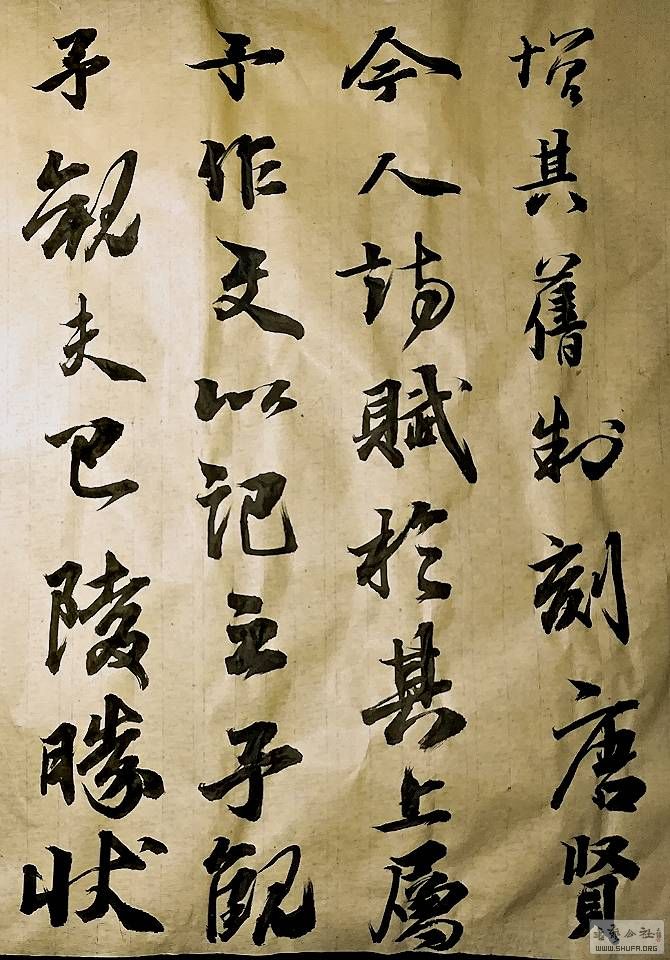 增其舊制刻唐賢
今人詩賦於其上屬
予作文以記之予觀
予觀夫巴陵勝狀
WWW.SHUFA.ORG